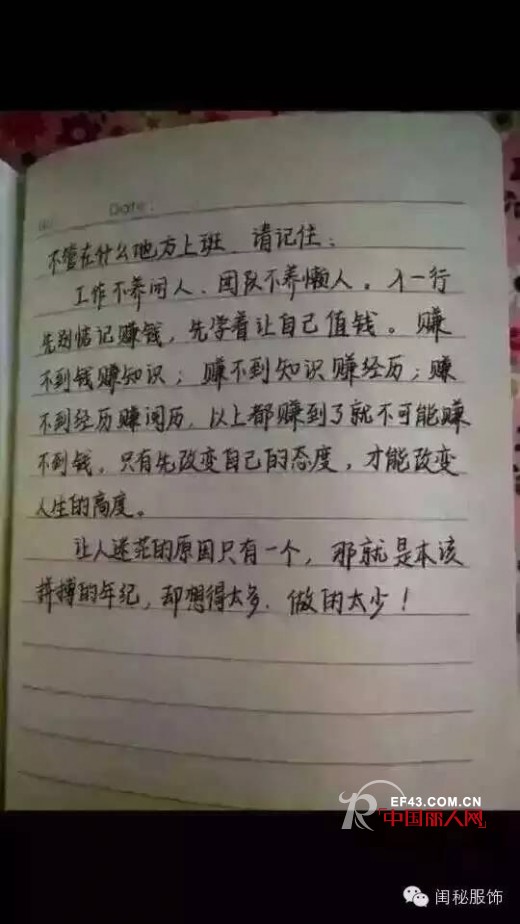 Date:
不管在什么地方上班、请记住:
工作不养闲人、团队不养懒人。入一行
先别惦记赚钱,先学着让自己值钱。赚
不到钱赚知识;赚不到知识赚经历;赚
不到经历赚阅历、以上都赚到了就不可能赚
不到钱,只有先改变自己的态度,才能改变
人生的高度。
让人迷茫的原因只有一个,那就是本该
拼搏的年纪,却想得太多、做的太少!
EF43.COM.CN
中国丽人网
闺秘服饰